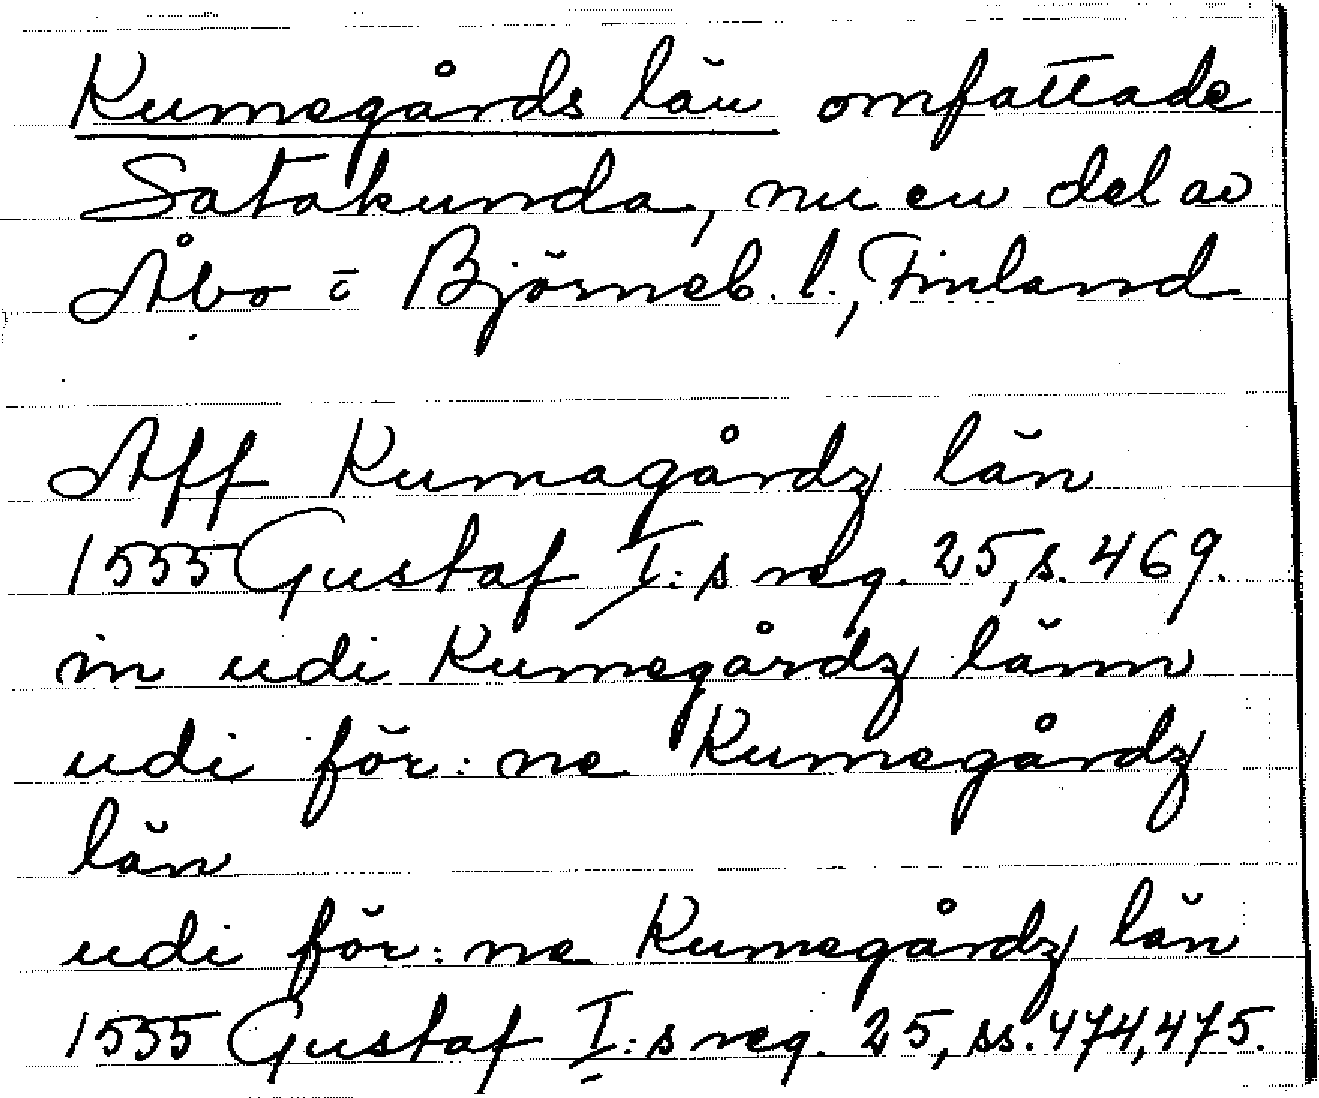 Kumegårds län omfattade
Satakunda, nu en del av
Åbo o Björneb. l., Finland
Aff Kumagårdz län
1555 Gustaf I:s reg. 25, s. 469.
in udi Kumegårdz länn
udi för:ne Kumegårdz
län
udi för:ne Kumegårdz län
1555 Gustaf I:s reg. 25, ss. 474, 475.